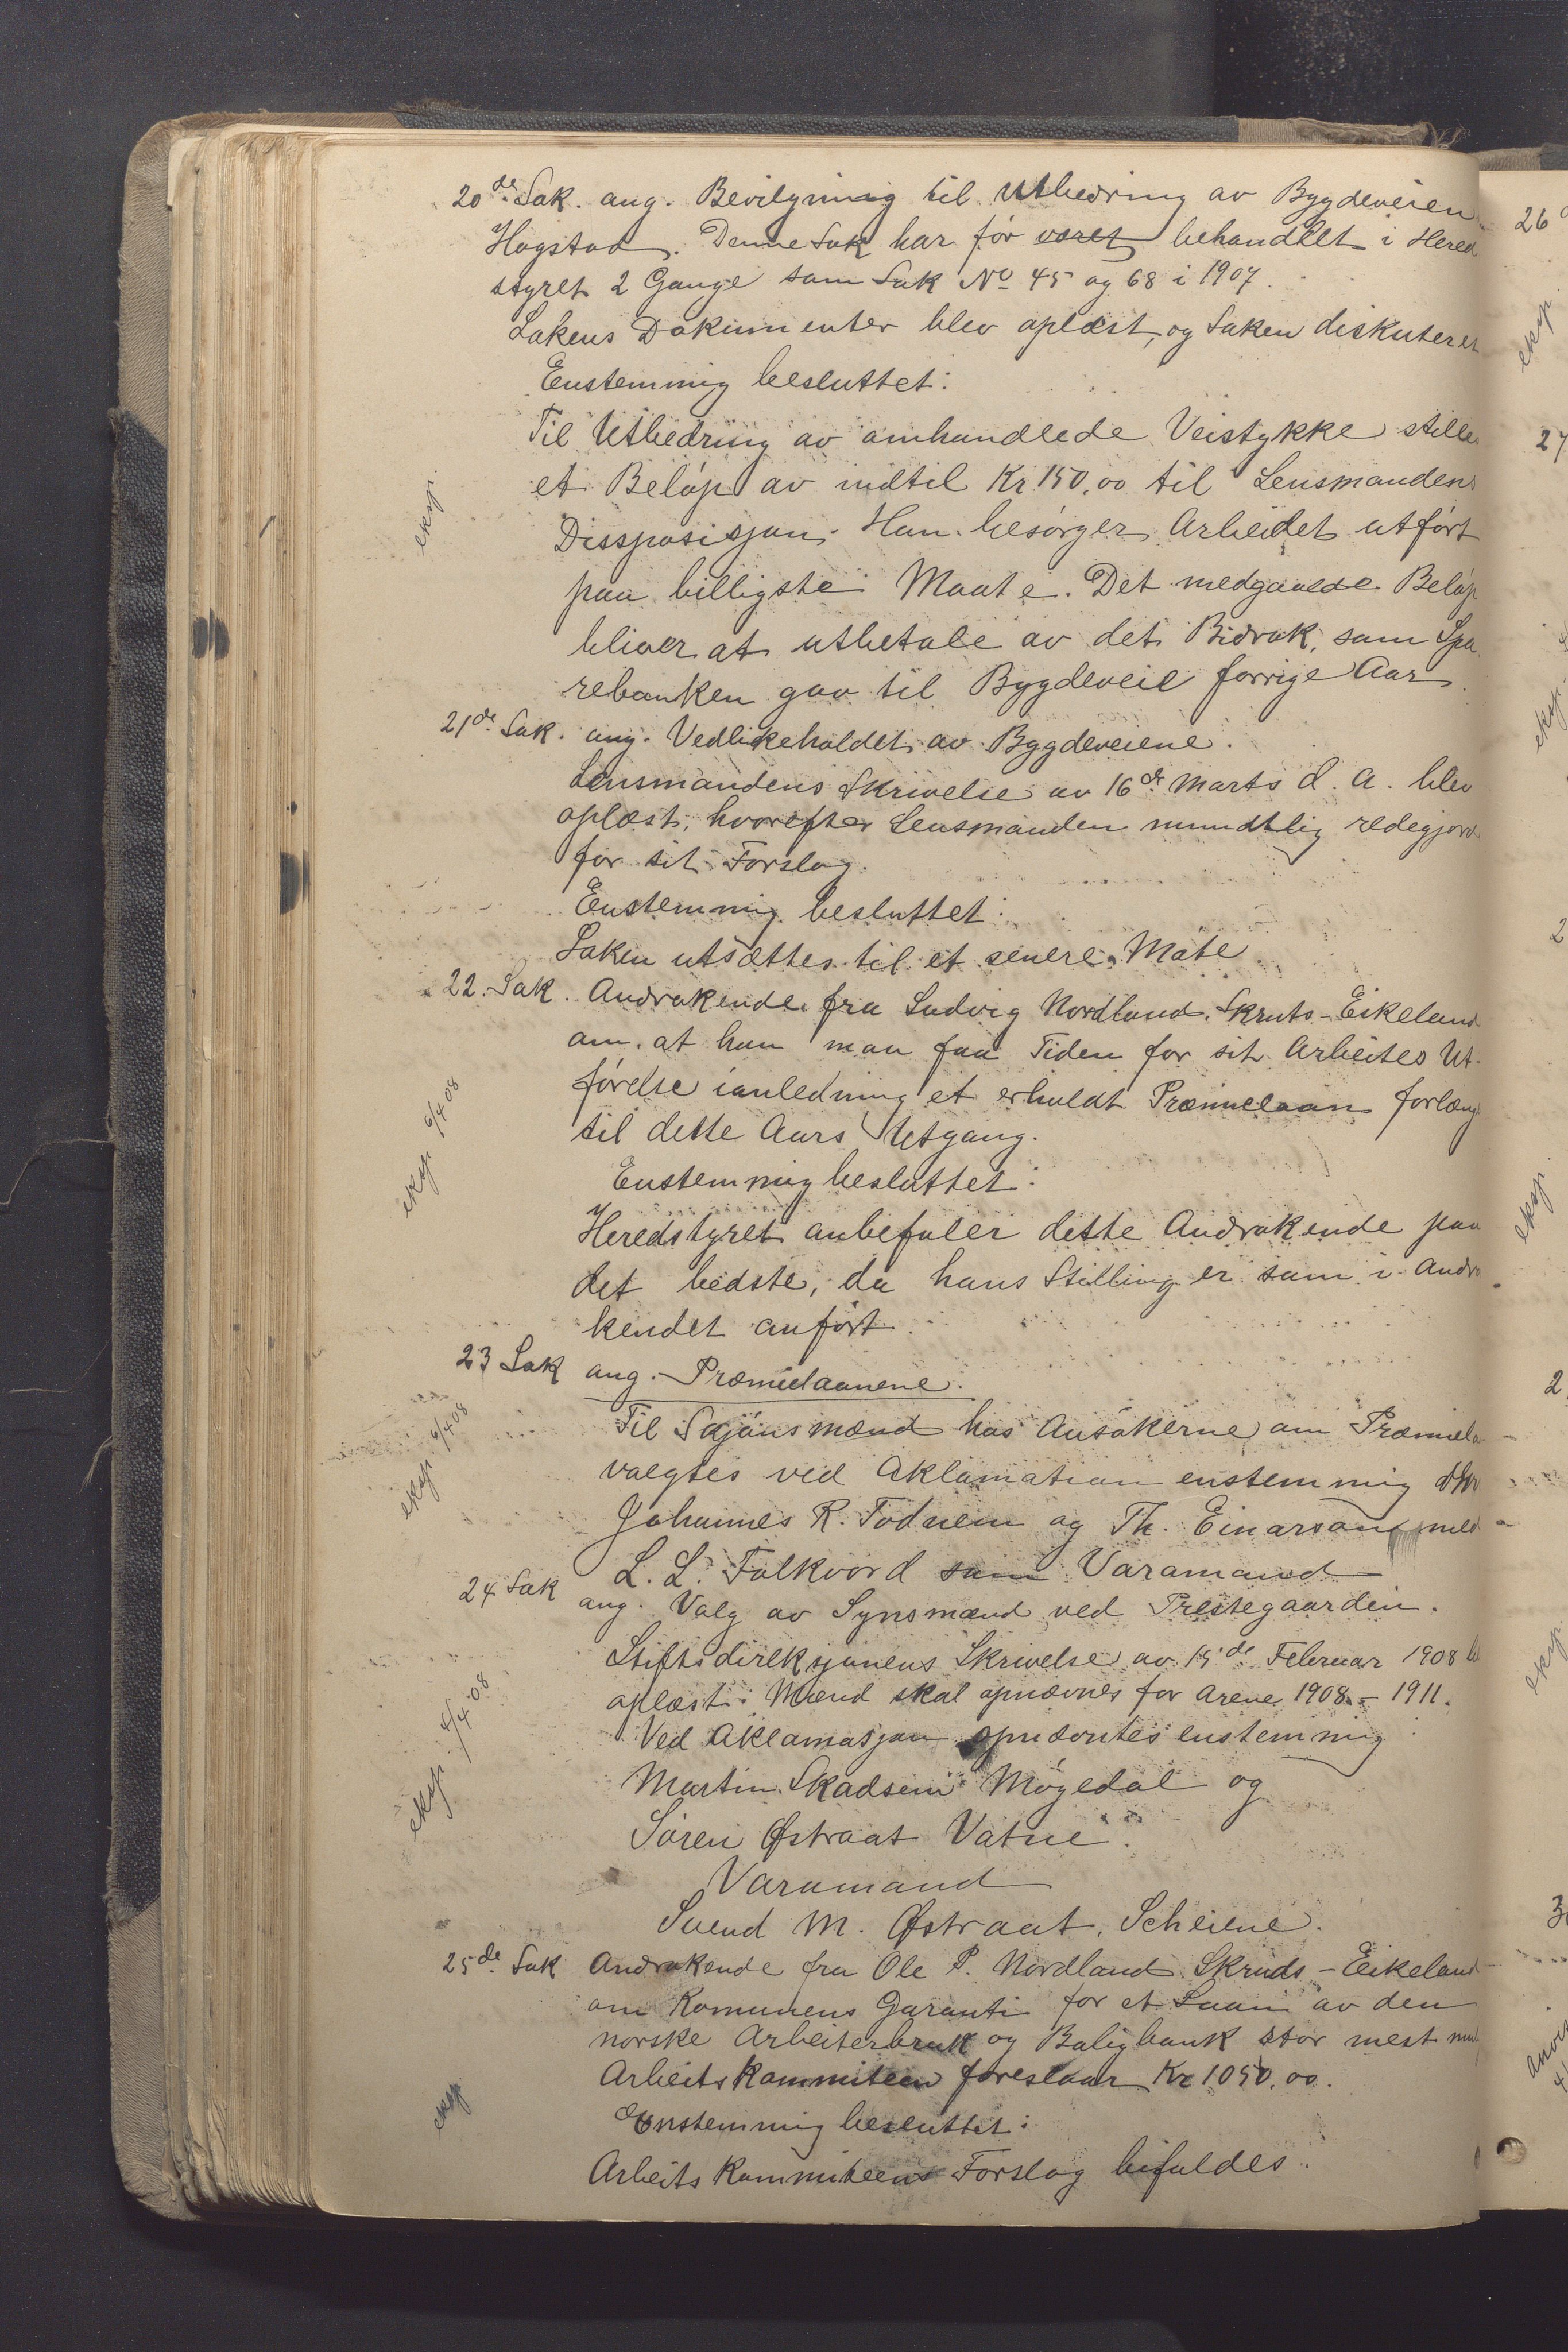 20de Sak. ang. Bevilgning til Utbedring av Bygdeveien
Hogstad. Denne Sak har før været behandlet i Hered
styret 2 Gange som Sak No 45 og 68 i 1907.
Sakens Dokumenter blev oplæst, og Saken diskuteret
Enstemmig besluttet:
Til Utbedring av omhandlede Veistykke stilles
eksp.
et Beløp av indtil Kr 150,00 til Lensmandens
Dissposisjon. Han besørger Arbeidet utført
paa billigste Maate. Det medgaaede Beløp
bliver at utbetale av det Bidrak, som Spa
rebanken gav til Bygdeveie forrige Aar.
21de Sak. ang. Vedlikeholdet av Bygdeveiene.
Lensmandens Skrivelse av 16de Marts d. A. blev
oplæst, hvorefter Lensmanden mundtlig redegjord
for sit Forslag.
Enstemmig besluttet:
Saken utsættes til et senere Møte.
22. Sak. Andrakende fra Ludvig Nordland, Skruts-Eikeland
om, at han maa faa Tiden for sit Arbeites Ut-
førelse ianledning et erholdt Præmielaan forlæng
eksp 6/4 08
til dette Aars Utgang.
Enstemmig besluttet:
Heredstyret anbefaler dette Andrakende paa
det bedste, da hans Stilling er som i Andra
kendet anført.
23 Sak ang. Præmielaanene.
eksp. 6/4 08
Til Skjønsmænd hos Ansøkerne om Præmiela
valgtes ved Aklamation enstemmig
Johannes R. Todnem og Th. Einarson med
L. L. Folkvord som Varamand
24 Sak ang. Valg av Synsmænd ved Prestegaarden.
Stiftsdireksjonens Skrivelse av 15de Februar 1908
oplæst. Mænd skal opnævnes for Arene 1908 - 1911.
Ved Aklamasjon opnævntes enstemmig
eksp. 6/4 08
Martin Skadsem Møgedal og
Søren Østraat Vatne.
Varamand
Svend M. Østraat, Scheiene.
25de Sak Andrakende fra Ole P. Nordland Skruds-Eikeland
om Komunens Garanti for et Laan av den
norske Arbeiterbruk og Boligbank stor mest
Arbeitskommiteen foreslaar Kr 1050,00.
eksp
Enstemmig besluttet:
Arbeitskommiteens Forslag bifaldes.
26
eksp.
27
eksp.
2
eksp.
2
eksp
3